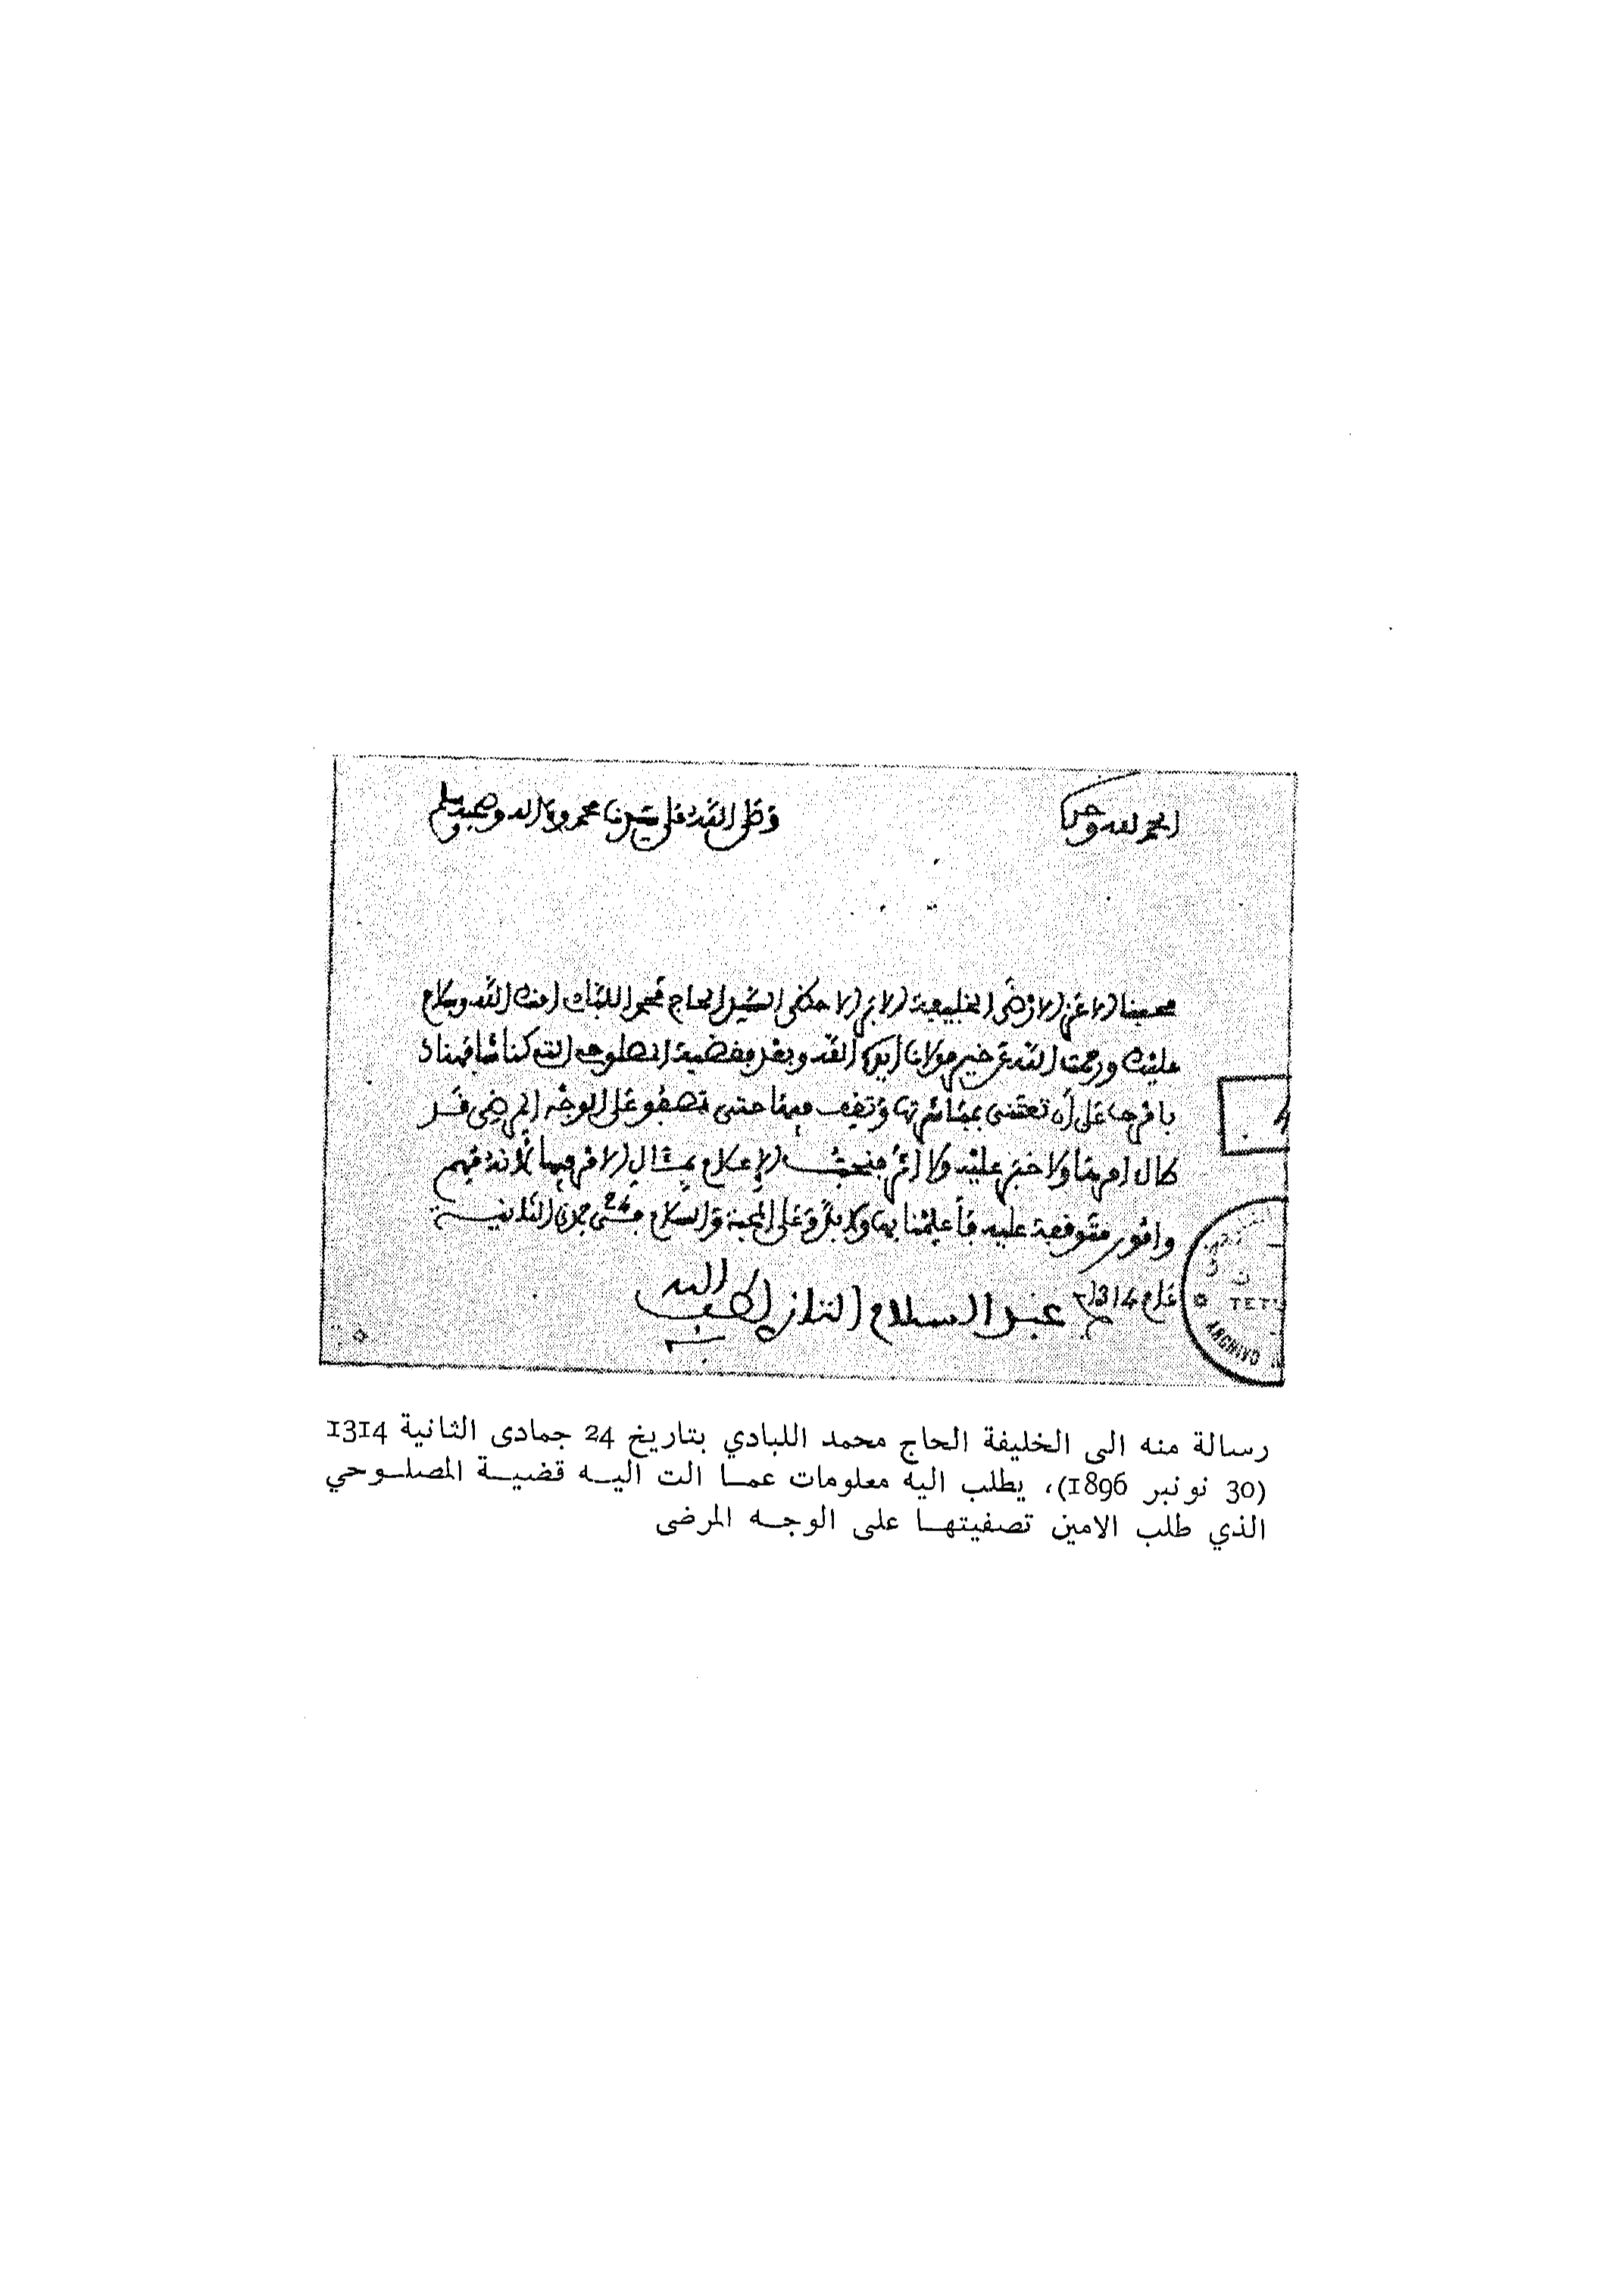 الحمد لله وحده
وصلى الله على سيدنا محمد وءاله وصحبه وسلم
محبنا الاعز الارضى الخليفة الابر الاحظى السيد الحاج محمد اللبادي امنك الله وسلام
عليك ورحمت الله عن خير مولانا ايده الله وبعد فقضية المصلوحي التي كنا شافهناك
بامرها على أن تعتني بمباشرتها وتقف فيها حتى تصفو على الوجه المرضي قد
طال امرها ولا خبر عليه ولا أثر فنحبك الإعلام بمئال الامر فيها لأنه
وامور متوقفة عليه فأعلمنا به ولا بد وعلى المحبة والسلام في 24 جمدى الثانية
عام 1314
عبد السلام التازي لطف الله به
TETU
رسالة منه الى الخليفة الحاج محمد اللبادي بتاريخ 24 جمادى الثانية 1314
(30 نونبر 1896)، يطلب اليه معلومات عمـا الت اليـه قضيـة المصلـوحي
الذي طلب الامين تصفيتهـا على الوجـه المرضى